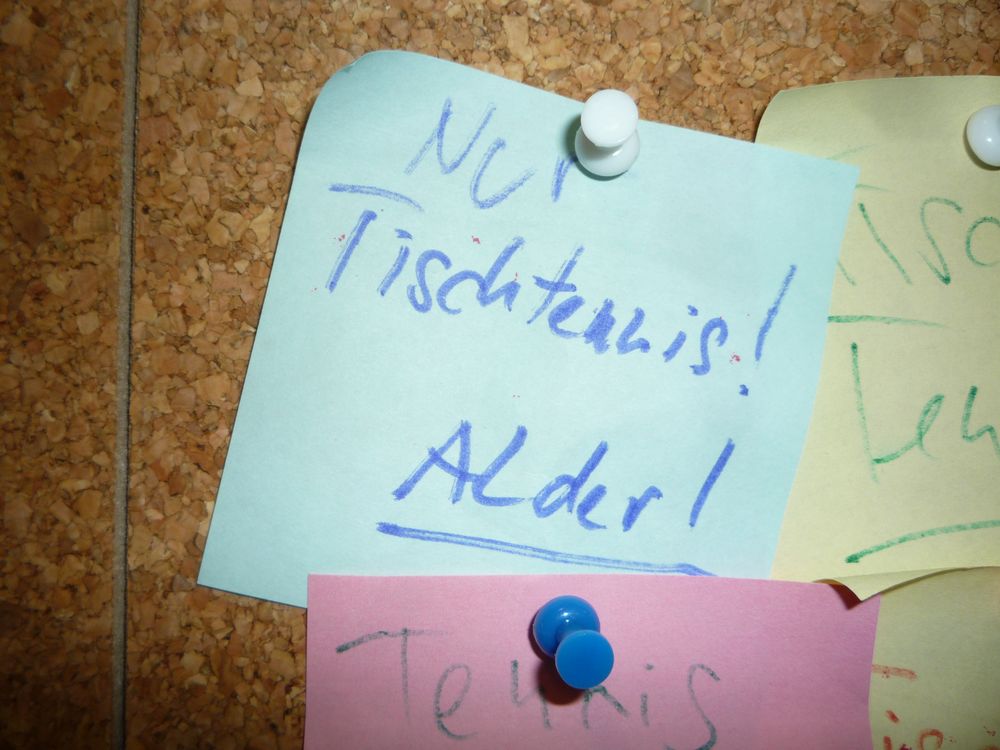 Nur
Tischtennis!
Alder!
Tisc
Ten
Tennis